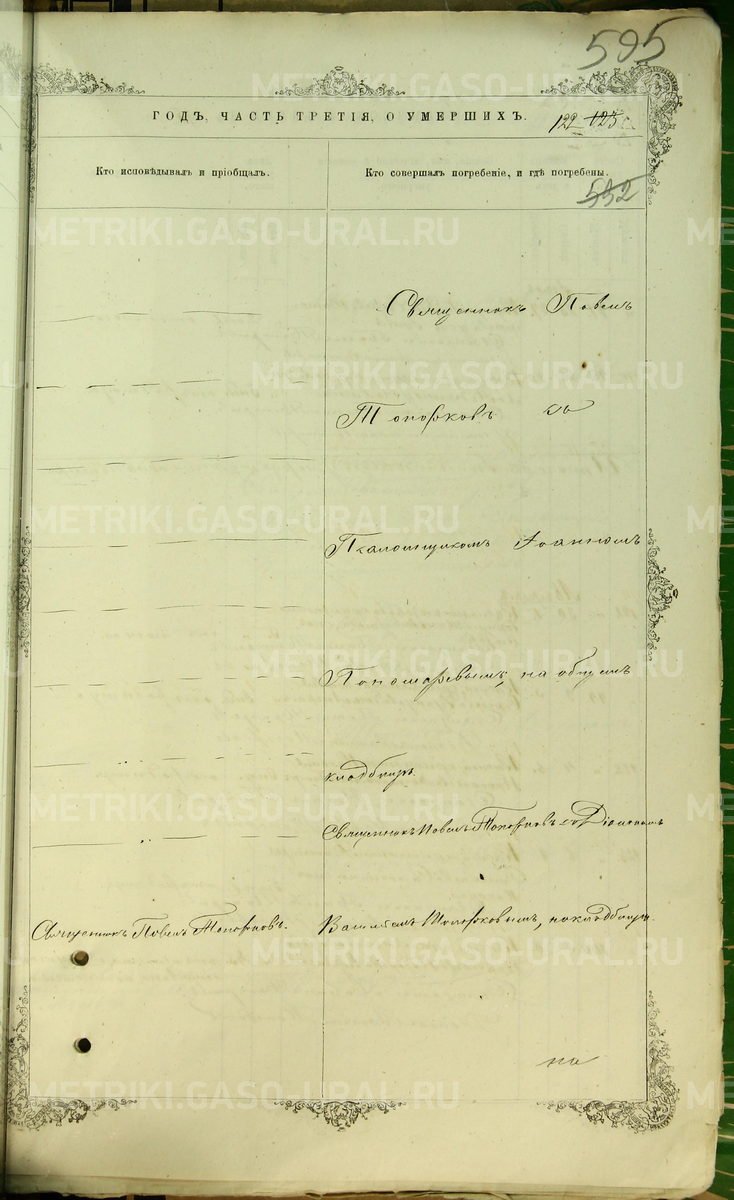 595
ГОДЪ, ЧАСТЬ ТРЕТІЯ, О УМЕРШИХЪ.
122 123
Кто исповѣдывалъ и пріобщалъ.
Кто совершалъ погребеніе, и гдѣ погребены.
592
Священникъ Павелъ
Топорковъ съ
Псаломщикомъ Іоанномъ
Пономаревымъ, на общемъ
кладбищѣ.
Священникъ Павелъ Топорковъ съ Діакономъ
Священникъ Павелъ Топорковъ.
Василіемъ Топорковымъ, на кладбищѣ.
на
METRIKI.GASO-URAL.RU